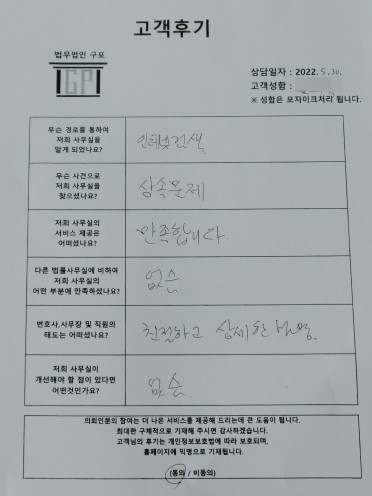 고객후기
법무법인 구포
GP
상담일자 : 2022. 5. 30.
고객성함 :
※ 성함은 모자이크처리 됩니다.
무슨 경로를 통하여
저희 사무실을
알게 되었나요?
인터넷검색
무슨 사건으로
저희 사무실을
찾으셨나요?
상속문제
저희 사무실의
서비스 제공은
어떠셨나요?
만족합니다.
다른 법률사무실에 비하여
저희 사무실의
어떤 부분에 만족하셨나요?
없슨
변호사,사무장 및 직원의
태도는 어떠셨나요?
친절하고 상세한
저희 사무실이
개선해야 할 점이 있다면
어떤것인가요?
없슨
의뢰인분의 참여는 더 나은 서비스를 제공해 드리는데 큰 도움이 됩니다.
최대한 구체적으로 기재해 주시면 감사하겠습니다.
고객님의 후기는 개인정보보호법에 따라 보호되며,
홈페이지에 익명으로 기재됩니다.
(동의 / 비동의)